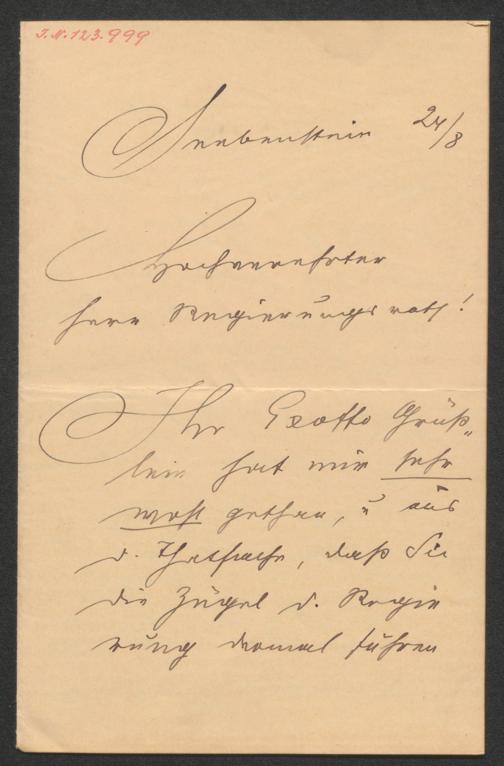 J.N. 123.999
Seebenstein 24/8
Hochverehrter
Herr Regierungsrath!
Ihr Grüß„
lein hat mir sehr
wohl gethan, u aus
d. Thatsache, daß Sie
die Zügel d. Regie
rung diesmal führen